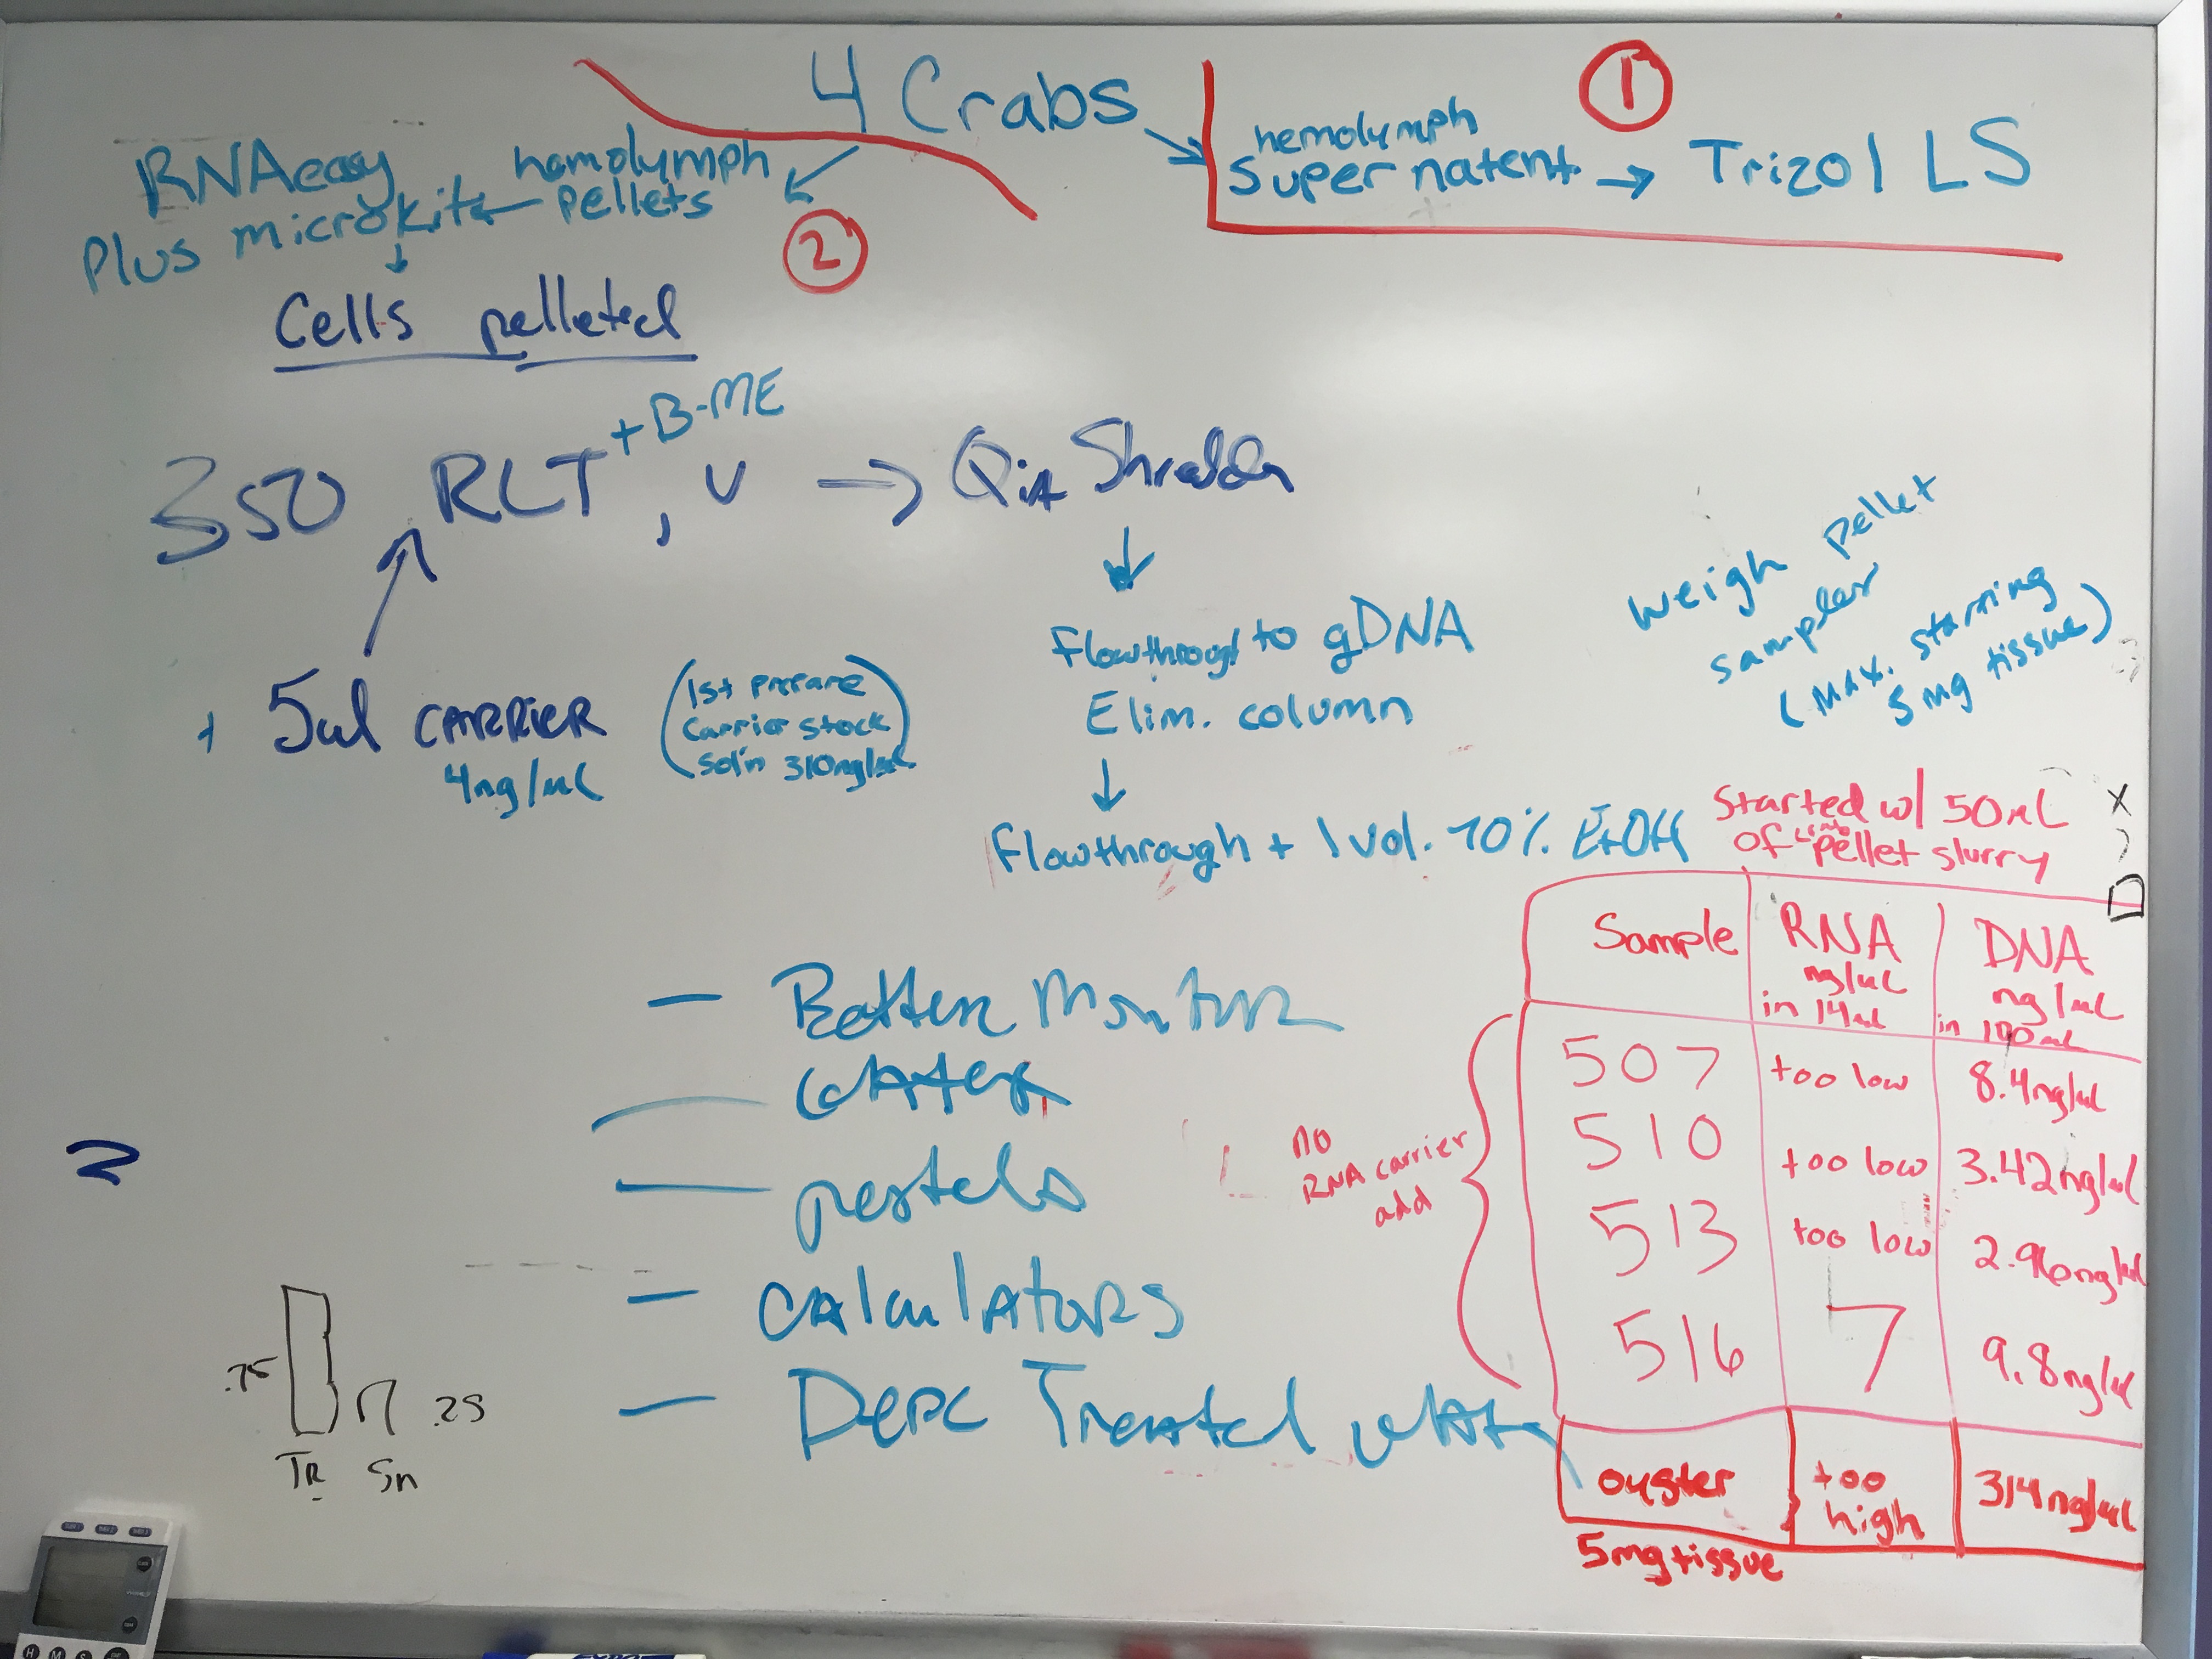 4 Crabs
1
hemolymph
supernatent → Trizol LS
RNAeasy
Plus microkit
hemolymph
pellets
2
Cells pelleted
350 RLT + B-ME, v → QiA Shredder
+ 5ul CARRIER
4ng/uL
(1st prepare
carrier stock
sol'n 310ng/uL)
Flowthrough to gDNA
Elim. column
Flowthrough + 1 vol. 70% EtOH
weigh pellet
samples
(Max. starting
5mg tissue)
Started w/ 50uL
of "pellet slurry
Sample RNA DNA
ng/uL ng/uL
in 14ul in 100uL
507 too low 8.4ng/ul
510 too low 3.42ng/ul
513 too low 2.96ng/ul
516 7 9.8ng/ul
oyster too high 314ng/uL
5mg tissue
no
RNA carrier
add
— Better Monitor
— pestels
— CAlculAtoRs
— Depc Treated wAter
2
.75
.25
TR Sn